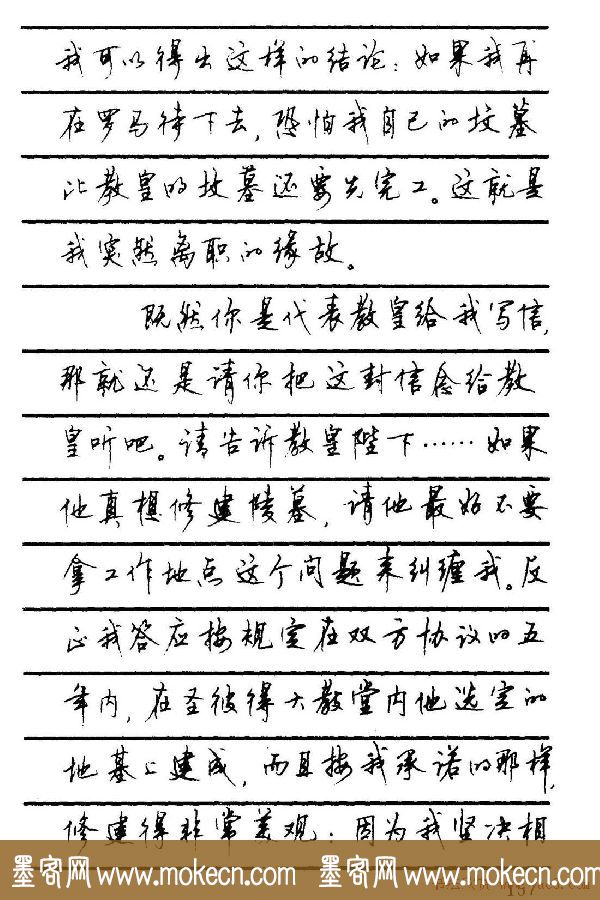 我可以得出这样的结论：如果我再
在罗马待下去，恐怕我自己的坟墓
比教皇的坟墓还要先完工。这就是
我突然离职的缘故。
既然你是代表教皇给我写信，
那就还是请你把这封信念给教
皇听吧。请告诉教皇陛下……如果
他真想修建陵墓，请他最好不要
拿工作地点这个问题来纠缠我。反
正我答应按规定在双方协议的五
年内，在圣彼得大教堂内他选定的
地基上建成，而且按我承诺的那样，
修建得非常美观：因为我坚决相
墨客网 www.mokecn.com 墨客网 www.mokecn.com
157